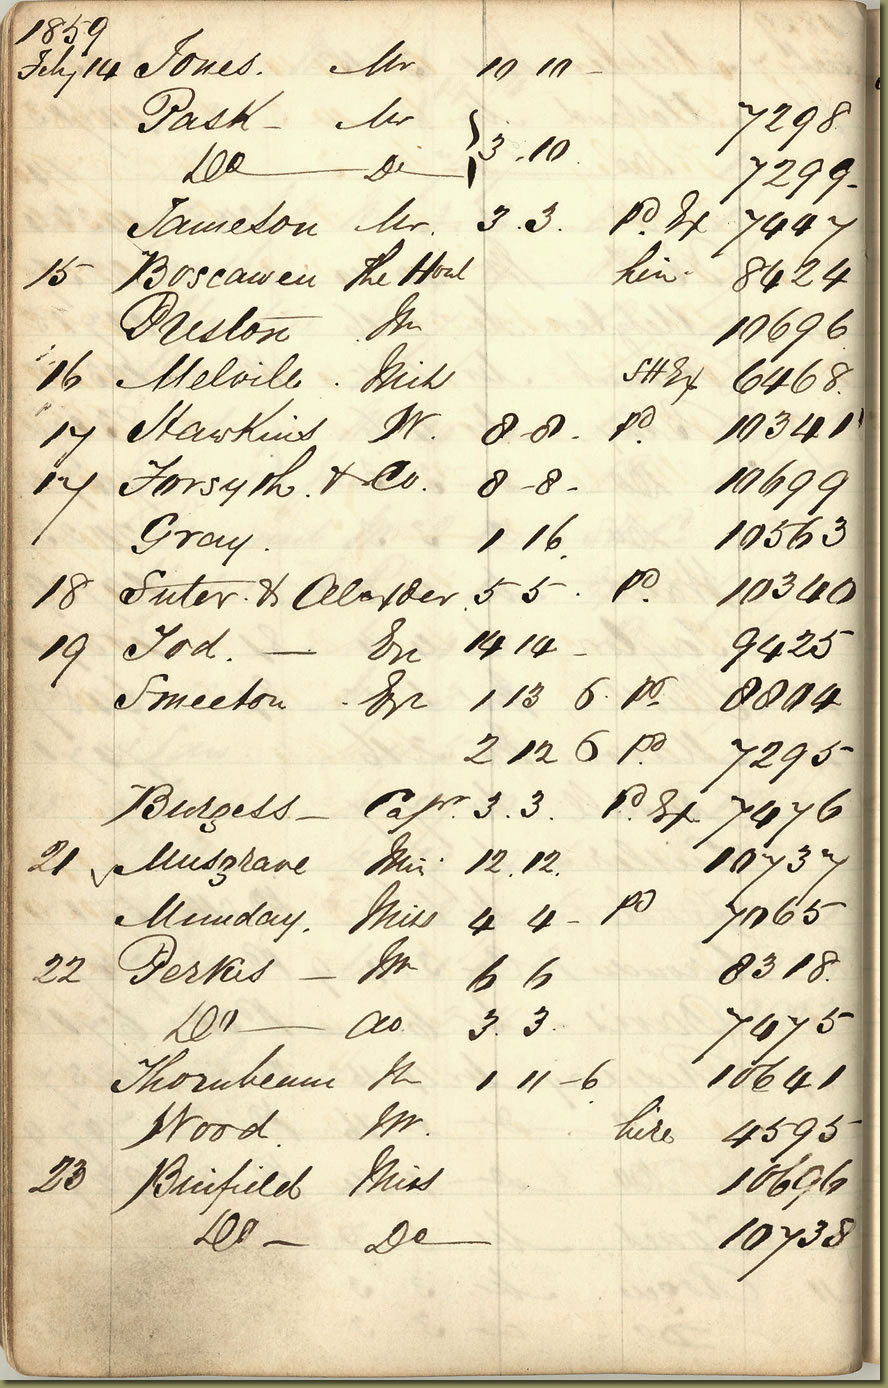 1859
Feby 14 Jones. Mr 10 10 -
Pask - Mr 7298
Do - Do } 3.10. 7299-
Jameson Mr. 3.3. Pd. Ex 7447
15 Boscawen The Honl hire 8424
Preston Mr 10696
16 Melville. Miss SH Ex 6468.
17 Hawkins W. 8-8. Pd. 10341
17 Forsyth. & Co. 8-8- 10699
Gray. 1 16. 10563
18 Suter & 5 5. Pd. 10340
19 Tod. - Esq 14 14 - 9425
Smeeton. Esqr 1 13 6. Pd. 8804
2 12 6 Pd 7295
Burgess - Capt. 3.3. Pd. Ex 7476
21 ✓ Musgrave Miss 12.12. 10737
Munday. Miss 4 4- Pd 7065
22 Perkes - Mr 6 6 8318.
Do - do 3.3. 7475
Thornbeam Mr 1 11-6 10641
Wood. Mr. hire 4595
23 Binfield Miss 10696
Do - Do - 10738